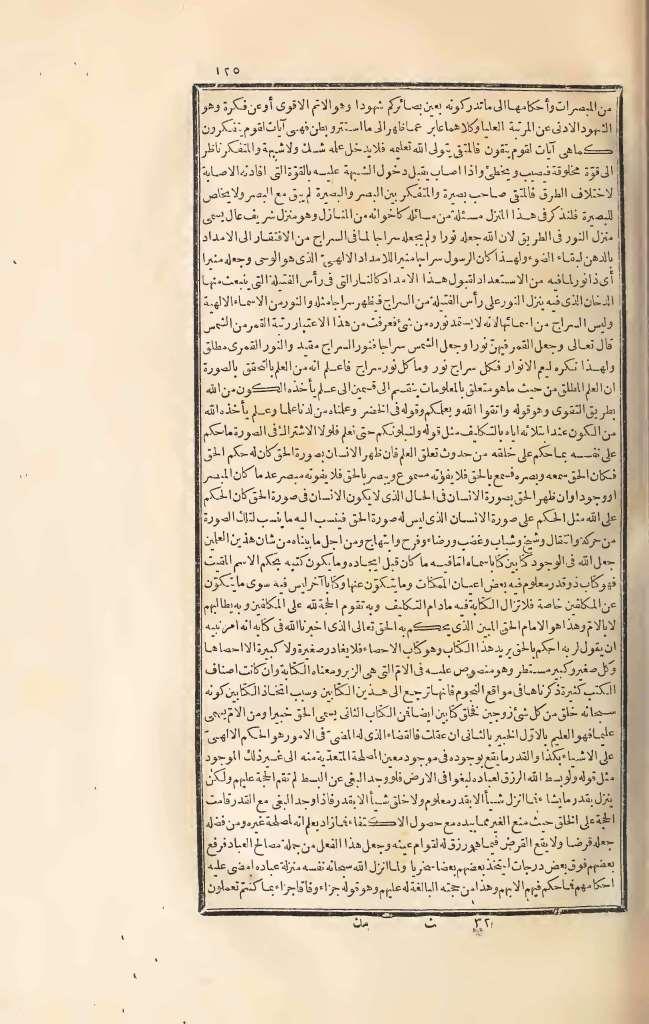 ١٢٥
من المبصرات وأحكامها الى ما تدركونه بعين بصائركم شهودا وهو الاتم الاقوى أو عن فكرة وهو
الشهود الادنى عن المرتبة العليا وكلاهما عابر عما ظهر الى ما استتر وبطن فهى آيات لقوم يتفكرون
كما هى آيات لقوم يتقون فالمتقى يتولى الله تعليمه فلا يدخل علمه شك ولا شبهة والمتفكر ناظر
الى قوة مخلوقة فيصيب ويخطئ واذا أصاب يقبل دخول الشبهة عليه بالقوة التى أفادته الاصابة
لاختلاف الطرق فالمتقى صاحب بصيرة والمتفكر بين البصر والبصيرة لم يبق مع البصر ولا يخلص
للبصيرة فلنذكر فى هذا المنزل مسئلة من مسائله كاخوانه من المنازل وهو منزل شريف عال يسمى
منزل النور فى الطريق لان الله جعله نورا ولم يجعله سراجا لما فى السراج من الافتقار الى الامداد
بالدهن لبقاء الضوء ولهذا كان الرسول سراجا منيرا للامداد الالهىّ الذى هو الوحى وجعله منيرا
أى ذا نور لما فيه من الاستعداد لقبول هذا الامداد كالنار التى فى رأس الفتيلة التى ينبعث منها
الدخان الذى فيه ينزل النور على رأس الفتيلة من السراج فيظهر سراجا مثله والنور من الاسماء الالهية
وليس السراج من اسمائها لانه لا يستمد نوره من شئ فعرفت من هذا الاعتبار رتبة القمر من الشمس
قال تعالى وجعل القمر فيهنّ نورا وجعل الشمس سراجا فنور السراج مقيد والنور القمرى مطلق
ولهذا نكره ليعم الانوار فكل سراج نور وما كل نور سراج فاعلم انه من العلم بالتحقق بالصورة
ان العلم المطلق من حيث ما هو متعلق بالمعلومات ينقسم الى قسمين الى علم يأخذه الكون من الله
بطريق التقوى وهو قوله واتقوا الله ويعلمكم وقوله فى الخضر وعلمناه من لدنا علما وعلم يأخذه الله
من الكون عند ابتلائه اياه بالتكليف مثل قوله ولنبلونكم حتى نعلم فلولا الاشتراك فى الصورة ما حكم
على نفسه بما حكم على خلقه من حدوث تعلق العلم فان ظهر الانسان بصورة الحق كان له حكم الحق
فكان الحق سمعه وبصره فسمع بالحق فلا يفوته مسموع ويبصر بالحق فلا يفوته مبصر عدما كان المبصر
أو وجودا وان ظهر الحق بصورة الانسان فى الحال الذى لا يكون الانسان فى صورة الحق كان الحكم
على الله مثل الحكم على صورة الانسان الذى ليس له صورة الحق فينسب اليه ما ينسب لتلك الصورة
من حركة وانتقال وشيخ وشباب وغضب ورضاء وفرح وابتهاج ومن أجل ما بيناه من شأن هذين العلمين
جعل الله فى الوجود كتابين كتابا سماه اما فيه ما كان قبل ايجاده وما يكون كتبه بحكم الاسم المقيت
فهو كتاب ذو قدر معلوم فيه بعض اعيان الممكنات وما يتكوّن عنها وكتابا آخر ليس فيه سوى ما يتكوّن
عن المكلفين خاصة فلا تزال الكتابة فيه ما دام التكليف وبه تقوم الحجة لله على المكلفين وبه يطالبهم
لا بالامّ وهذا هو الامام الحق المبين الذى يحكم به الحق تعالى الذى أخبرنا الله فى كتابه انه أمر نبيه
ان يقول لربه احكم بالحق يريد هذا الكتاب وهو كتاب الاحصاء فلا يغادر صغيرة ولا كبيرة الا أحصاها
وكل صغير وكبير مستطر وهو منصوص عليه فى الامّ التى هى الزبر ومعناه الكتابة وان كانت أصناف
الكتب كثيرة ذكرناها فى مواقع النجوم فانها ترجع الى هذين الكتابين وسبب اتخاذ الكتابين كونه
سبحانه خلق من كل شئ زوجين فخلق كتابين أيضا فمن الكتاب الثانى يسمى الحق خبيرا ومن الامّ يسمى
عليما فهو العليم بالاول الخبير بالثانى ان عقلت فالقضاء الذى له المضىّ فى الامور هو الحكم الالهىّ
على الاشياء بكذا والقدر ما يقع بوجوده فى موجود معين المصلحة المتعدّية منه الى غير ذلك الموجود
مثل قوله ولو بسط الله الرزق لعباده لبغوا فى الارض فلو وجد البغى عن البسط لم تقم الحجة عليهم ولكن
ينزل بقدر ما يشاء فما أنزل شيأ الا بقدر معلوم ولا خلق شيأ الا بقدر فاذا وجد البغى مع القدر قامت
الحجة على الخلق حيث منع الغير مما بيده مع حصول الاكتفاء فما زاد يعلم انه لمصلحة غيره ومن فضله
جعله قرضا ولا يقع القرض فيما هو رزق له لقوام عينه وجعل هذا الفعل من جملة مصالح العباد فرفع
بعضهم فوق بعض درجات ليتخذ بعضهم بعضا سخريا ولما أنزل الله سبحانه نفسه منزلة عباده أمضى عليه
أحكامهم فما حكم فيهم الا بهم وهذا من حجته البالغة له عليهم وهو قوله جزاء وفاقا جزاء بما كنتم تعملون
٣٢ ث